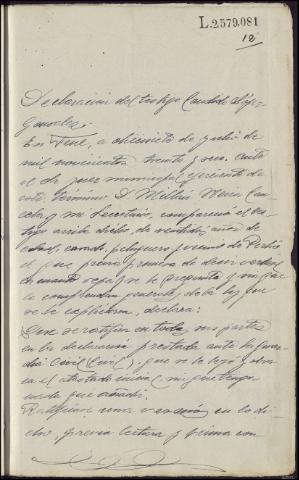 L.2579.081
12
Declaración del testigo Candido López
Gonzalez.
En Fene, a diecisiete de julio de
mil novecientos treinta y seis, ante
el Sr. juez municipal ejerciente de
este término D. Millán María
y mi Secretario, comparecio el tes
tigo arriba dicho, de veintiseis años de
edad, casado, y vecino de Perlío
el que previa promesa de decir verdad
en cuanto sepa y se le pregunte y sin que
le comprendan generales de la ley que
se le explicaron, declara:
Que se ratifica en todas sus partes
en la declaración prestada ante la Guar
dia Civil (Civil), que se le leyó y obra
en el atestado inicial, ni que tenga
nada que añadir.
Ratificase una vez más en lo di
cho, previa lectura y firma con